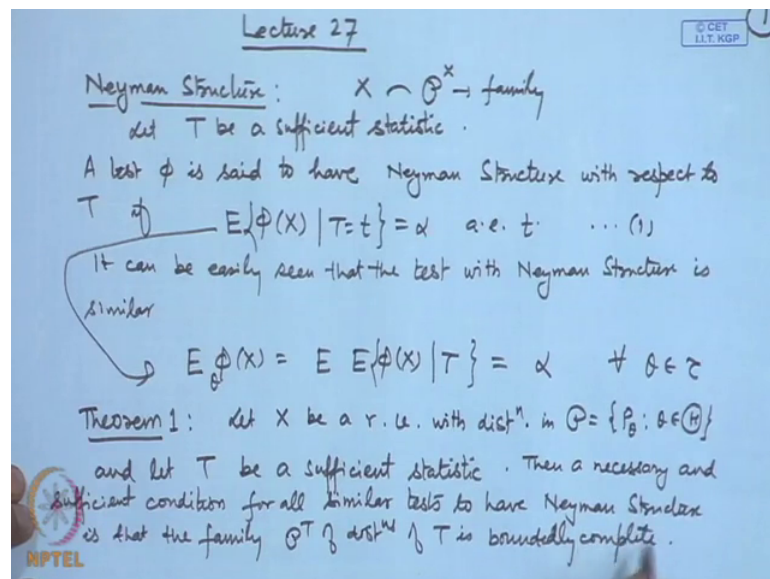 Lecture 27
© CET
I.I.T. KGP
Neyman Structure : X ~ 𝒫^X → family
Let T be a sufficient statistic .
A test ϕ is said to have Neyman Structure with respect to
T if E{ϕ(X) | T=t} = α a.e. t. ... (1)
It can be easily seen that the test with Neyman Structure is
similar
E_θ ϕ(X) = E E{ϕ(X) | T} = α ∀ θ ∈ τ
Theorem 1 : Let X be a r. u. with distⁿ. in 𝒫 = {P_θ : θ ∈ Ⓗ}
and let T be a sufficient statistic . Then a necessary and
sufficient condition for all similar tests to have Neyman Structure
is that the family 𝒫^T of distⁿˢ of T is boundedly complete .
NPTEL